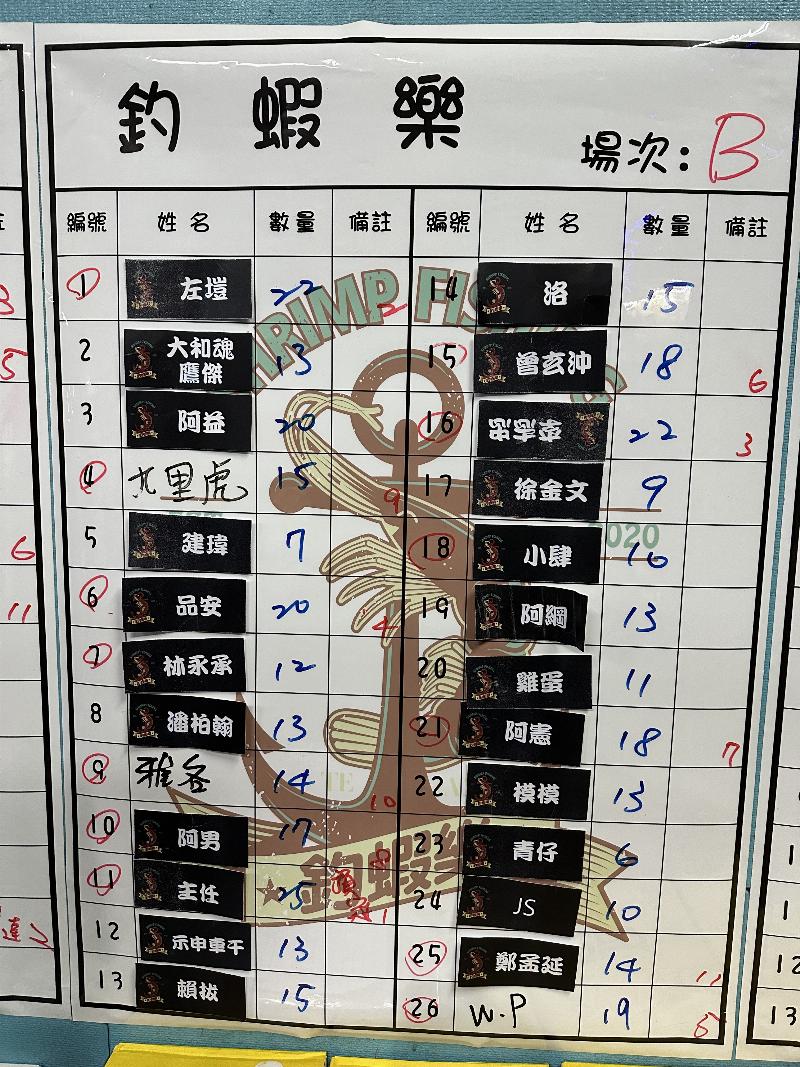 釣蝦樂
場次: B
編號 姓名 數量 備註 編號 姓名 數量 備註
1 左塏 22 2 14 洛 15
2 大和魂鷹傑 13 15 曾玄沖 18 6
3 阿益 20 16 22 3
4 九里虎 15 9 17 徐金文 9
5 建瑋 7 18 小肆 16
6 品安 20 4 19 阿綱 13
7 林永承 12 20 雞蛋 11
8 潘柏翰 13 21 阿憲 18 7
9 雅各 14 10 22 模模 13
10 阿男 17 8 23 青仔 6
11 主任 25 預冠 1 24 JS 10
12 示申車干 13 25 鄭孟延 14 11
13 賴拔 15 26 W.P 19 5
SHRIMP
2020
釣蝦樂
3
5
6
11
連2
1
1
12
13